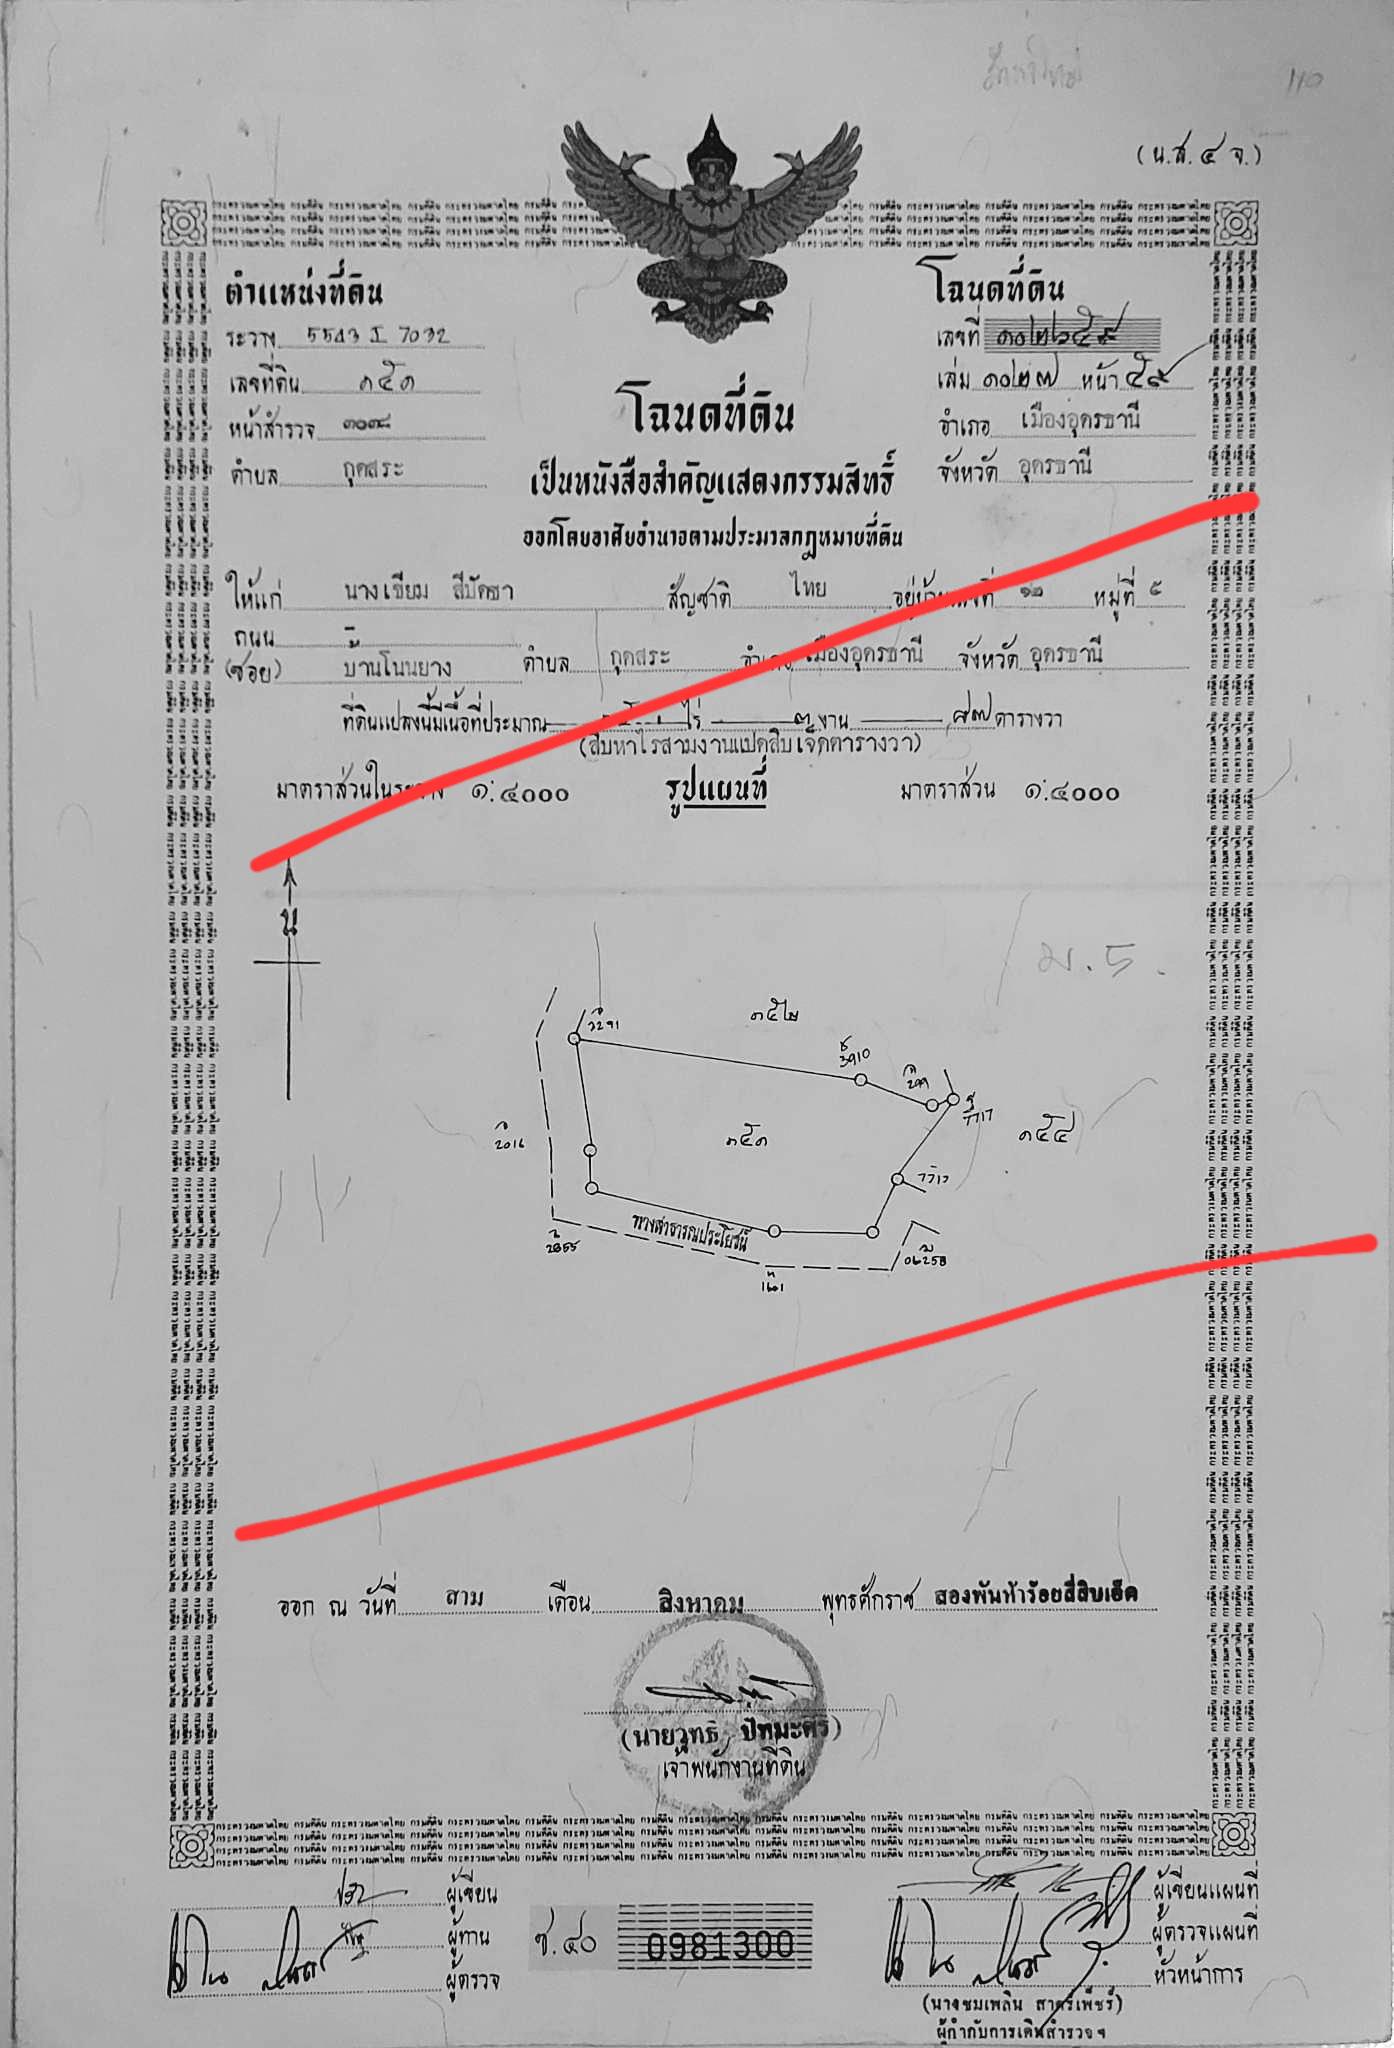 (น.ส. ๔ จ.)
ตำแหน่งที่ดิน
ระวาง 5543 I 7032
เลขที่ดิน ๑๕๑
หน้าสำรวจ ๓๐๓๘
ตำบล กุดสระ
โฉนดที่ดิน
เลขที่ ๑๐๒๖๕๙
เล่ม ๑๐๒๗ หน้า ๕๙
อำเภอ เมืองอุดรธานี
จังหวัด อุดรธานี
โฉนดที่ดิน
เป็นหนังสือสำคัญแสดงกรรมสิทธิ์
ออกโดยอาศัยอำนาจตามประมวลกฎหมายที่ดิน
ให้แก่ นางเขียม สีบัดชา สัญชาติ ไทย อยู่บ้านเลขที่ ๑๒ หมู่ที่ ๕
ถนน -
(ซอย) บ้านโนนยาง ตำบล กุดสระ อำเภอ เมืองอุดรธานี จังหวัด อุดรธานี
ที่ดินแปลงนี้มีเนื้อที่ประมาณ ไร่ ๓ งาน ๘๗ ตารางวา
(สิบห้าไร่สามงานแปดสิบเจ็ดตารางวา)
มาตราส่วนในระวาง ๑:๔๐๐๐ รูปแผนที่ มาตราส่วน ๑:๔๐๐๐
น
ม.5.
3291
3910
299
7717
๑๕๑
๑๕๔
2016
7717
ทางสาธารณประโยชน์
2855
06258
ออก ณ วันที่ สาม เดือน สิงหาคม พุทธศักราช สองพันห้าร้อยสี่สิบเอ็ด
(นายวุทธิ ปัทมะศิริ)
เจ้าพนักงานที่ดิน
ผู้เขียน
ผู้ทาน
ผู้ตรวจ
ช.๔๐ 0981300
ผู้เขียนแผนที่
ผู้ตรวจแผนที่
หัวหน้าการ
(นางชมเพลิน สาตร์เพ็ชร์)
ผู้กำกับการเดินสำรวจฯ